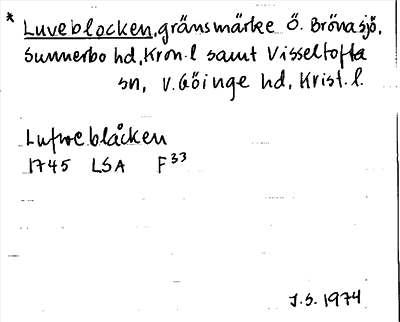 * Luveblocken, gränsmärke Ö. Brönasjö,
Sunnerbo hd, Kron. l samt Visseltofta
sn, V. Göinge hd, Krist. l.
Lufweblåcken
1745 LSA F33
J.S. 1974